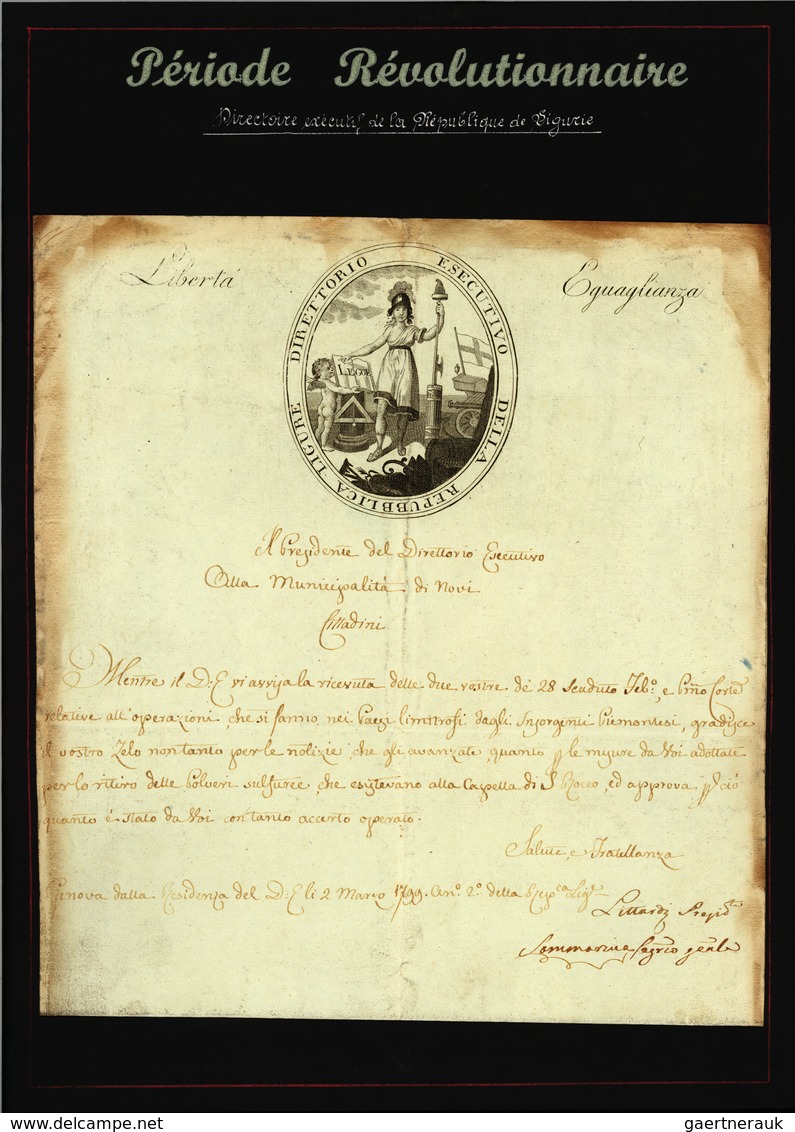 Période Révolutionnaire
Directoire exécutif de la République de Ligurie
Libertá
Eguaglianza
DIRETTORIO ESECUTIVO DELLA REPUBBLICA LIGURE
LEGGI
Il Presidente del Direttorio Esecutivo
Alla Municipalità di Novi
Cittadini
Mentre il D. E vi avvisa la ricevuta delle due vostre de 28 scaduto Feb.º, e Pmo Corte
relative all'operazioni, che si fanno nei Paesi limitrofi dagli Insorgenti Piemontesi, gradisce
il vostro Zelo non tanto per le notizie, che gli avanzate, quanto p le misure da Voi adottate
per lo ritiro delle Polveri sulfuree, che esistevano alla Capella di S Rocco, ed approva p ciò
quanto è stato da Voi con tanto accerto operato.
Salute, e Fratellanza
Genova dalla Residenza del D. E li 2 Marzo 1799. An.º 2.º della Rep.ca Lig.e
Littardi Presid.te
Sommariva, Segrio genle
delcampe.net
gaertnerauk